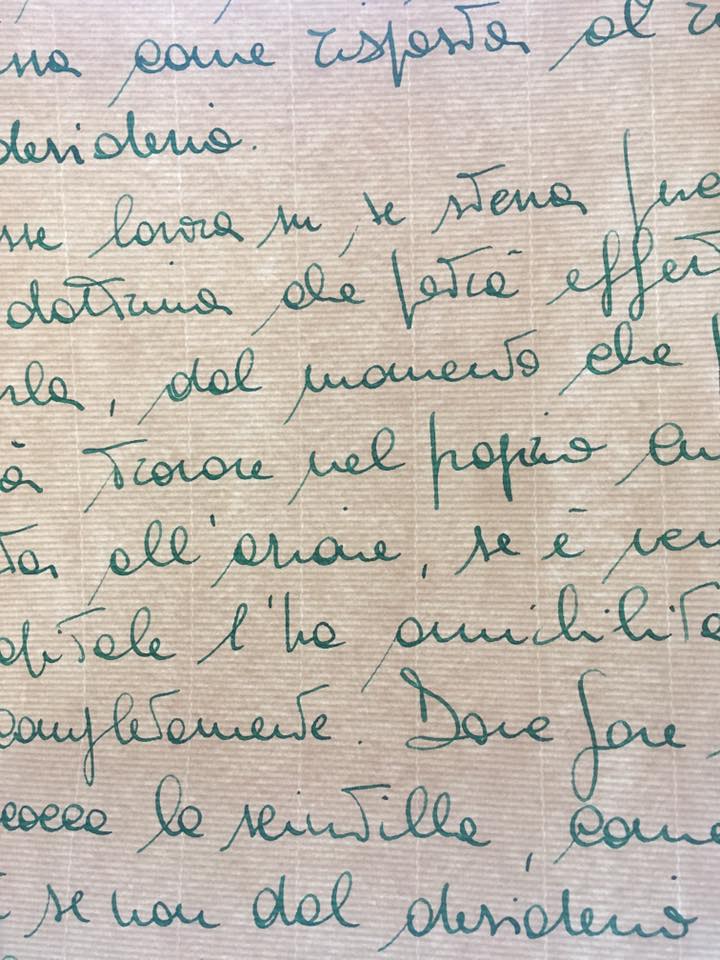 come risposta al
desiderio.
sse lavora su se stessa
dottrina che potrà effett
rla, dal momento che
à trovare nel proprio
ta all'azione, se è ver
apitale l'ha annichilita
completamente. Dove fare
la scintilla, come
se non dal desiderio